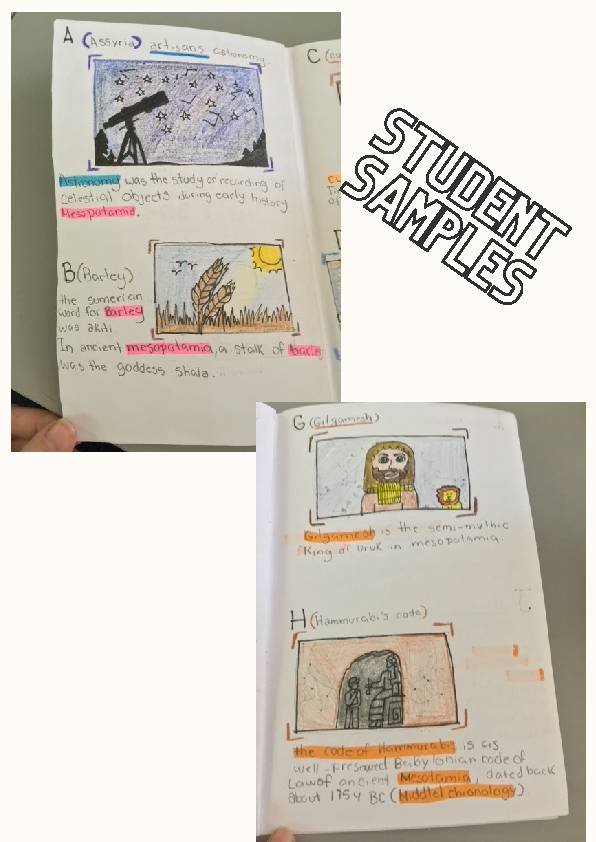 A (Assyria) artisans astronomy.
Astronomy was the study or recording of
celestial objects during early history
Mesopotamia.
B (Barley)
the sumerian
word for Barley
was akiti
In ancient mesopotamia, a stalk of barley
was the goddess shala.
C
STUDENT
SAMPLES
G (Gilgamesh)
Gilgamesh is the semi-mythic
King of Uruk in mesopotamia.
H (Hammurabi's code)
the code of Hammurabi is as
well-preserved Babylonian code of
Law of ancient Mesotamia, dated back
about 1754 BC (Middlel chronology)